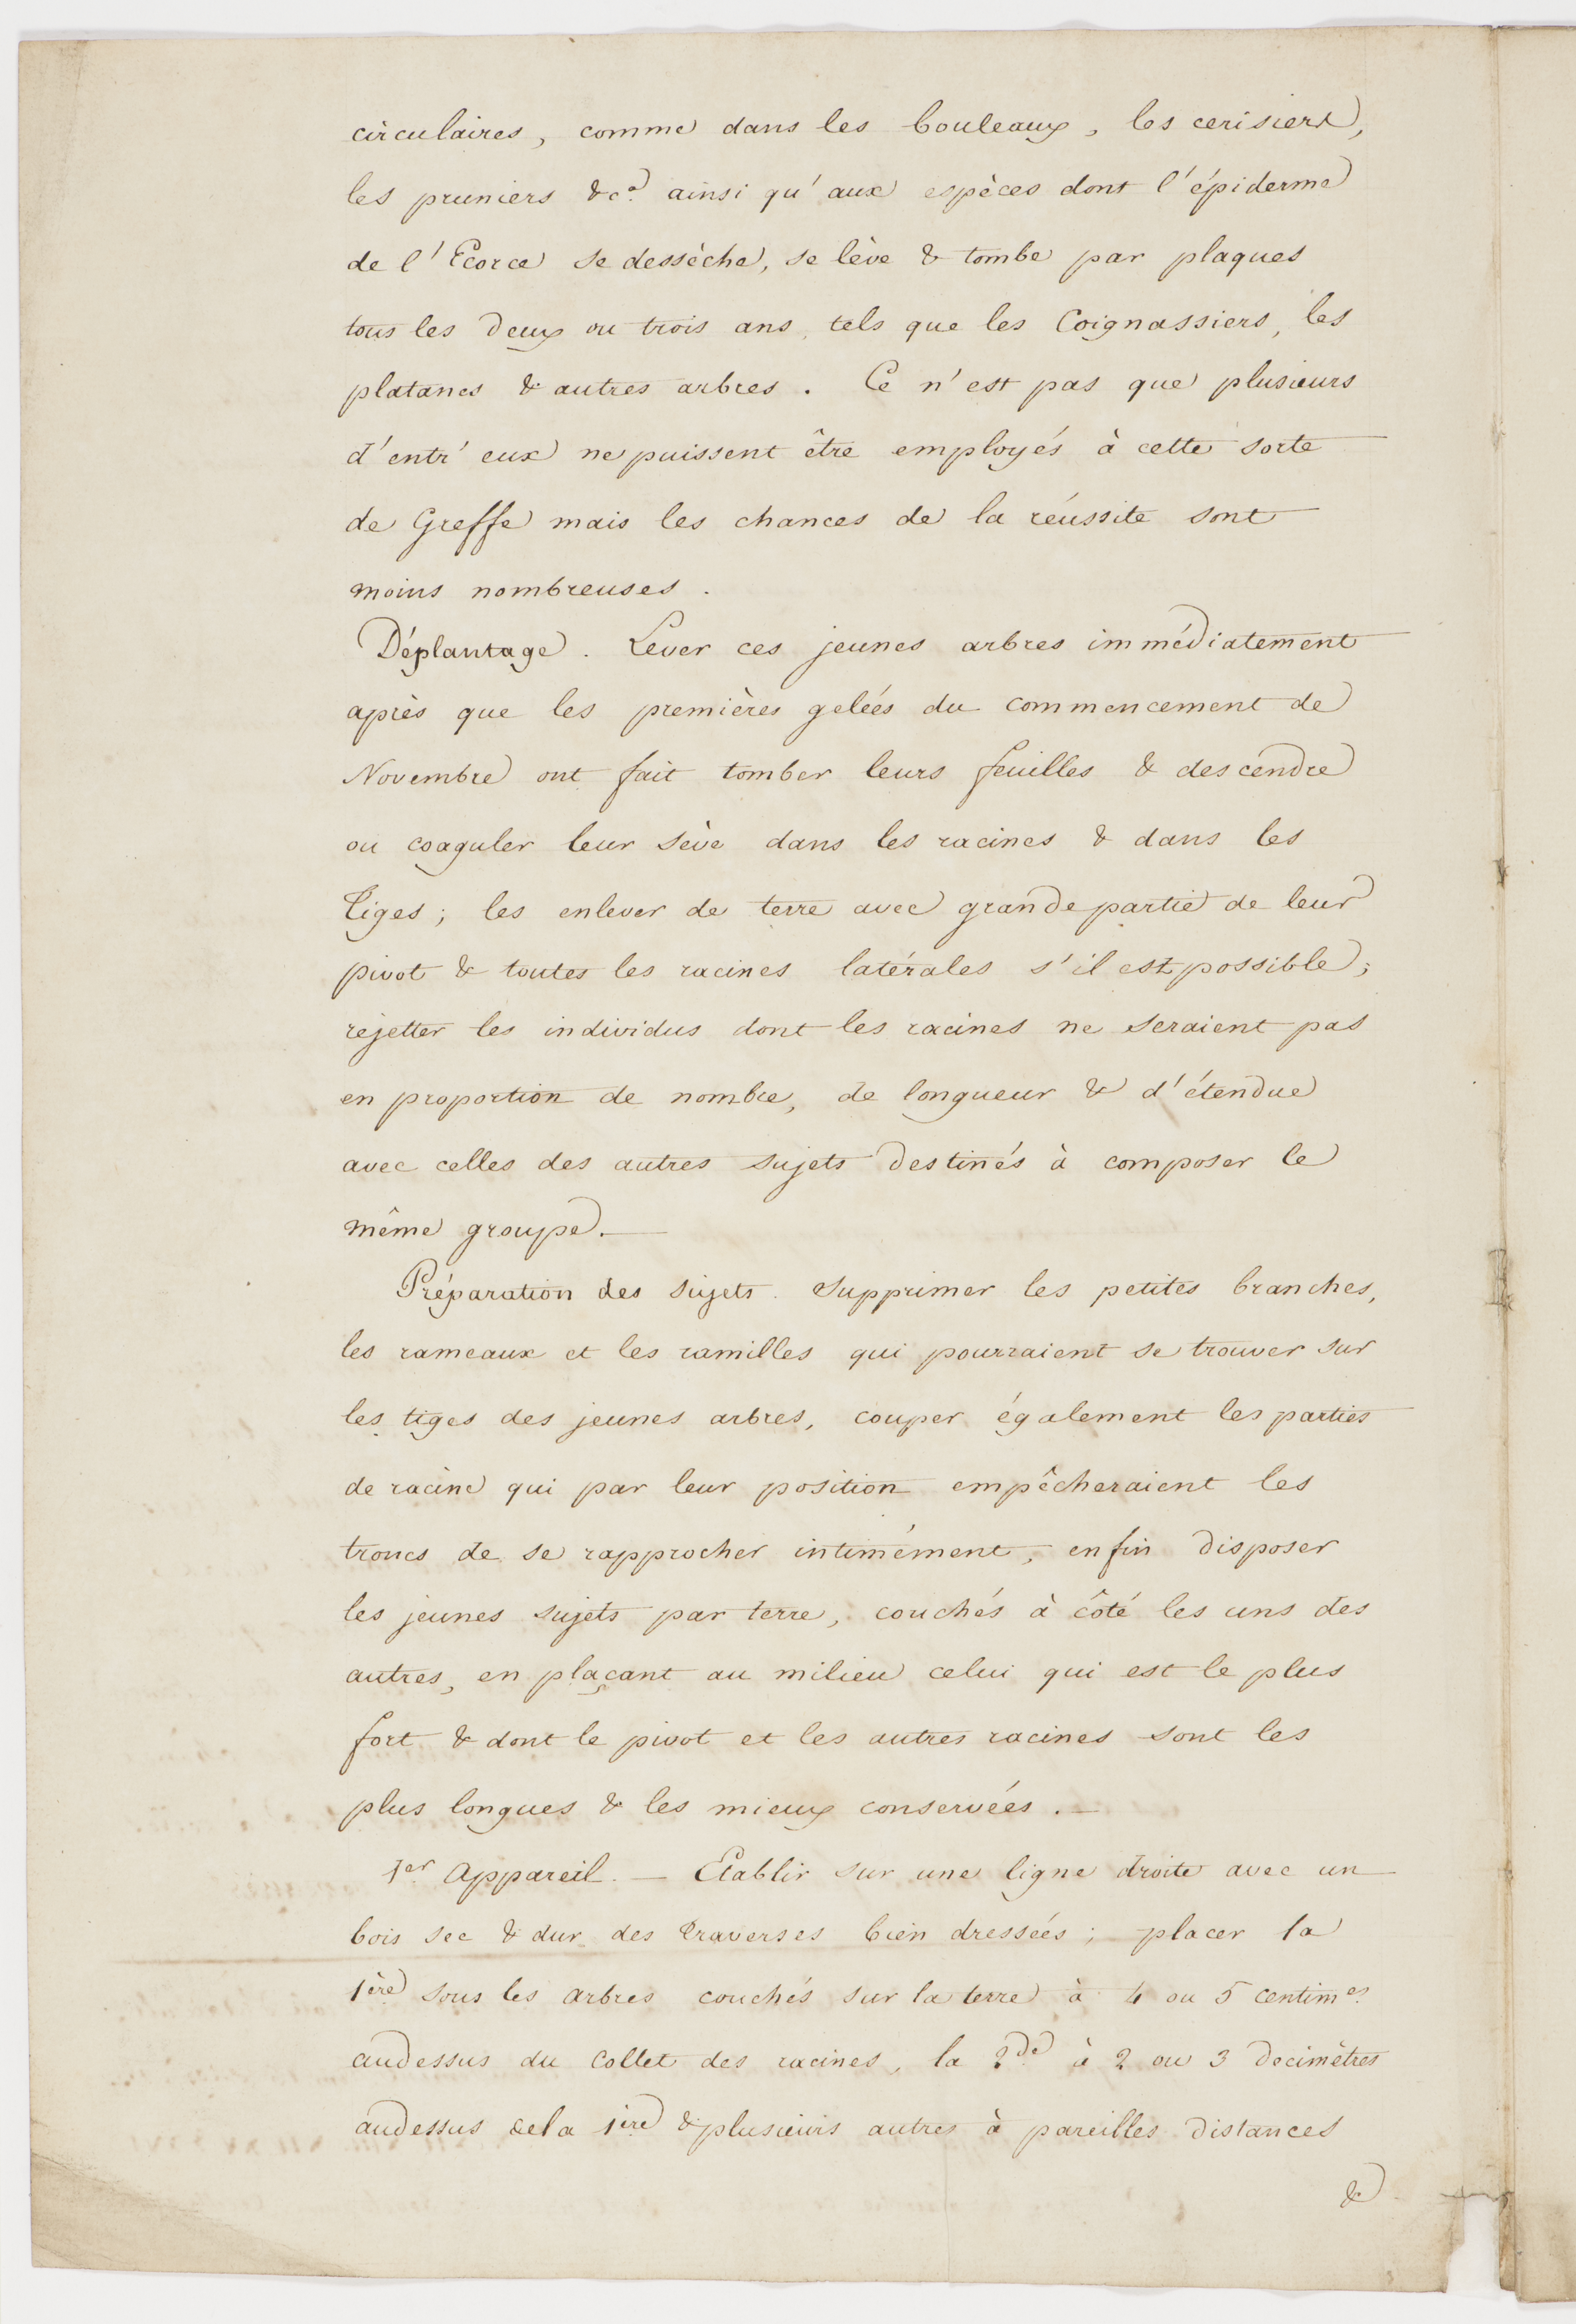 circulaires, comme dans les bouleaux, les cerisiers,
les pruniers &ca. ainsi qu'aux espèces dont l'épiderme
de l'Ecorce se dessèche, se lève & tombe par plaques
tous les deux ou trois ans, tels que les Coignassiers, les
platanes & autres arbres. Ce n'est pas que plusieurs
d'entr'eux ne puissent être employés à cette sorte
de Greffe mais les chances de la réussite sont
moins nombreuses.
Déplantage. Lever ces jeunes arbres immédiatement
après que les premières gelées du commencement de
Novembre ont fait tomber leurs feuilles & descendre
ou coaguler leur sève dans les racines & dans les
Tiges; les enlever de terre avec grande partie de leur
pivot & toutes les racines latérales s'il est possible;
rejetter les individus dont les racines ne seraient pas
en proportion de nombre, de longueur & d'étendue
avec celles des autres sujets destinés à composer le
même groupe.—
Préparation des sujets. Supprimer les petites branches,
les rameaux et les ramilles qui pourraient se trouver sur
les tiges des jeunes arbres, couper également les parties
de racine qui par leur position empêcheraient les
troncs de se rapprocher intimément, enfin disposer
les jeunes sujets par terre, couchés à côté les uns des
autres, en plaçant au milieu celui qui est le plus
fort & dont le pivot et les autres racines sont les
plus longues & les mieux conservées.—
1er. Appareil.— Etablir sur une ligne droite avec un
bois sec & dur des traverses bien dressées; placer la
1ère sous les arbres couchés sur la terre à 4 ou 5 centimes.
audessus du Collet des racines, la 2de à 2 ou 3 decimètres
audessus de la 1ère & plusieurs autres à pareilles distances
&